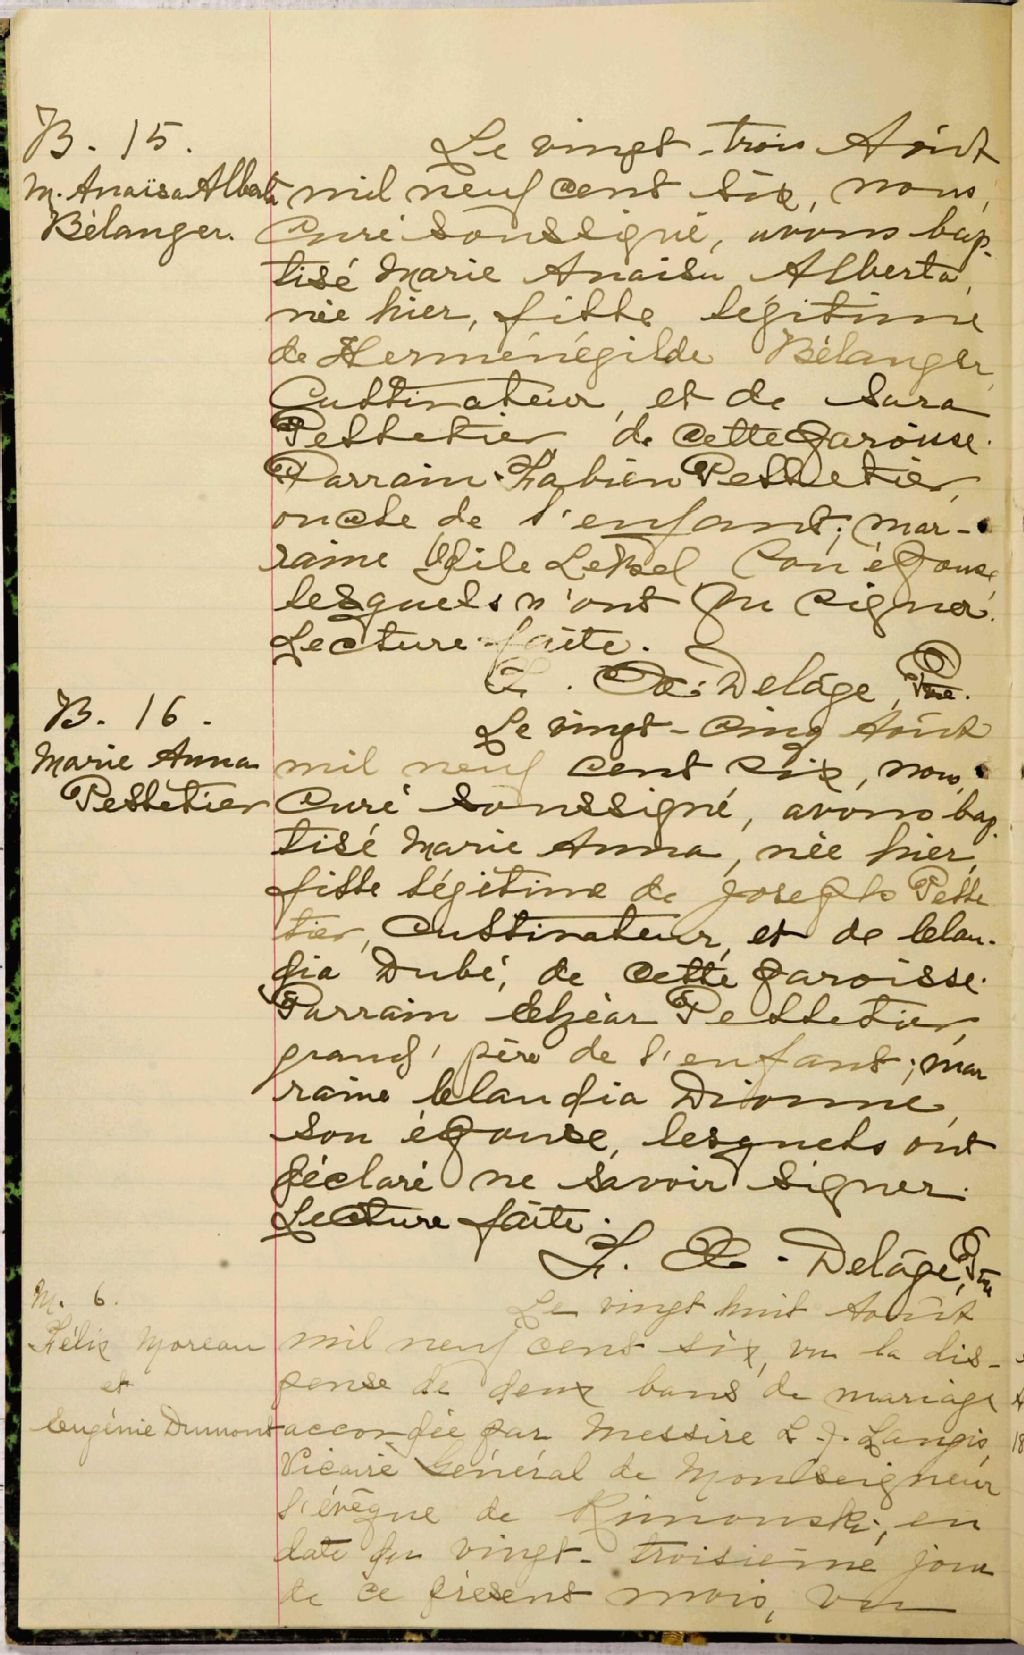 B. 15.
M. Anaïsa Alberta
Bélanger.
Le vingt-trois Août
mil neuf cent six, nous,
Curé soussigné, avons bap-
tisé Marie Anaïsa Alberta,
née hier, fille légitime
de Herménégilde Bélanger,
Cultivateur, et de Sara
Pelletier de cette paroisse.
Parrain Fabien Pelletier,
oncle de l'enfant; mar-
raine Lebel son épouse,
lesquels n'ont pu signer.
Lecture faite.
F. X. Delâge, Ptre.
B. 16.
Marie Anna
Pelletier
Le vingt-cinq Août
mil neuf cent six, nous,
Curé soussigné, avons bap-
tisé Marie Anna, née hier,
fille légitime de Joseph Pelle
tier, Cultivateur, et de Clau-
dia Dubé, de cette paroisse.
Parrain Elzéar Pelletier,
grand'père de l'enfant; mar
raine Claudia Dionne,
son épouse, lesquels ont
déclaré ne savoir signer.
Lecture faite.
F. X. Delâge, Ptre
M. 6.
Félix Moreau
et
Eugénie Dumont
Le vingt huit Août
mil neuf cent six, vu la dis-
pense de deux bans de mariage
accordée par Messire L. J. Langis,
Vicaire Général de Monseigneur
l'évêque de Rimouski, en
date du vingt-troisième jour
de ce présent mois, vu